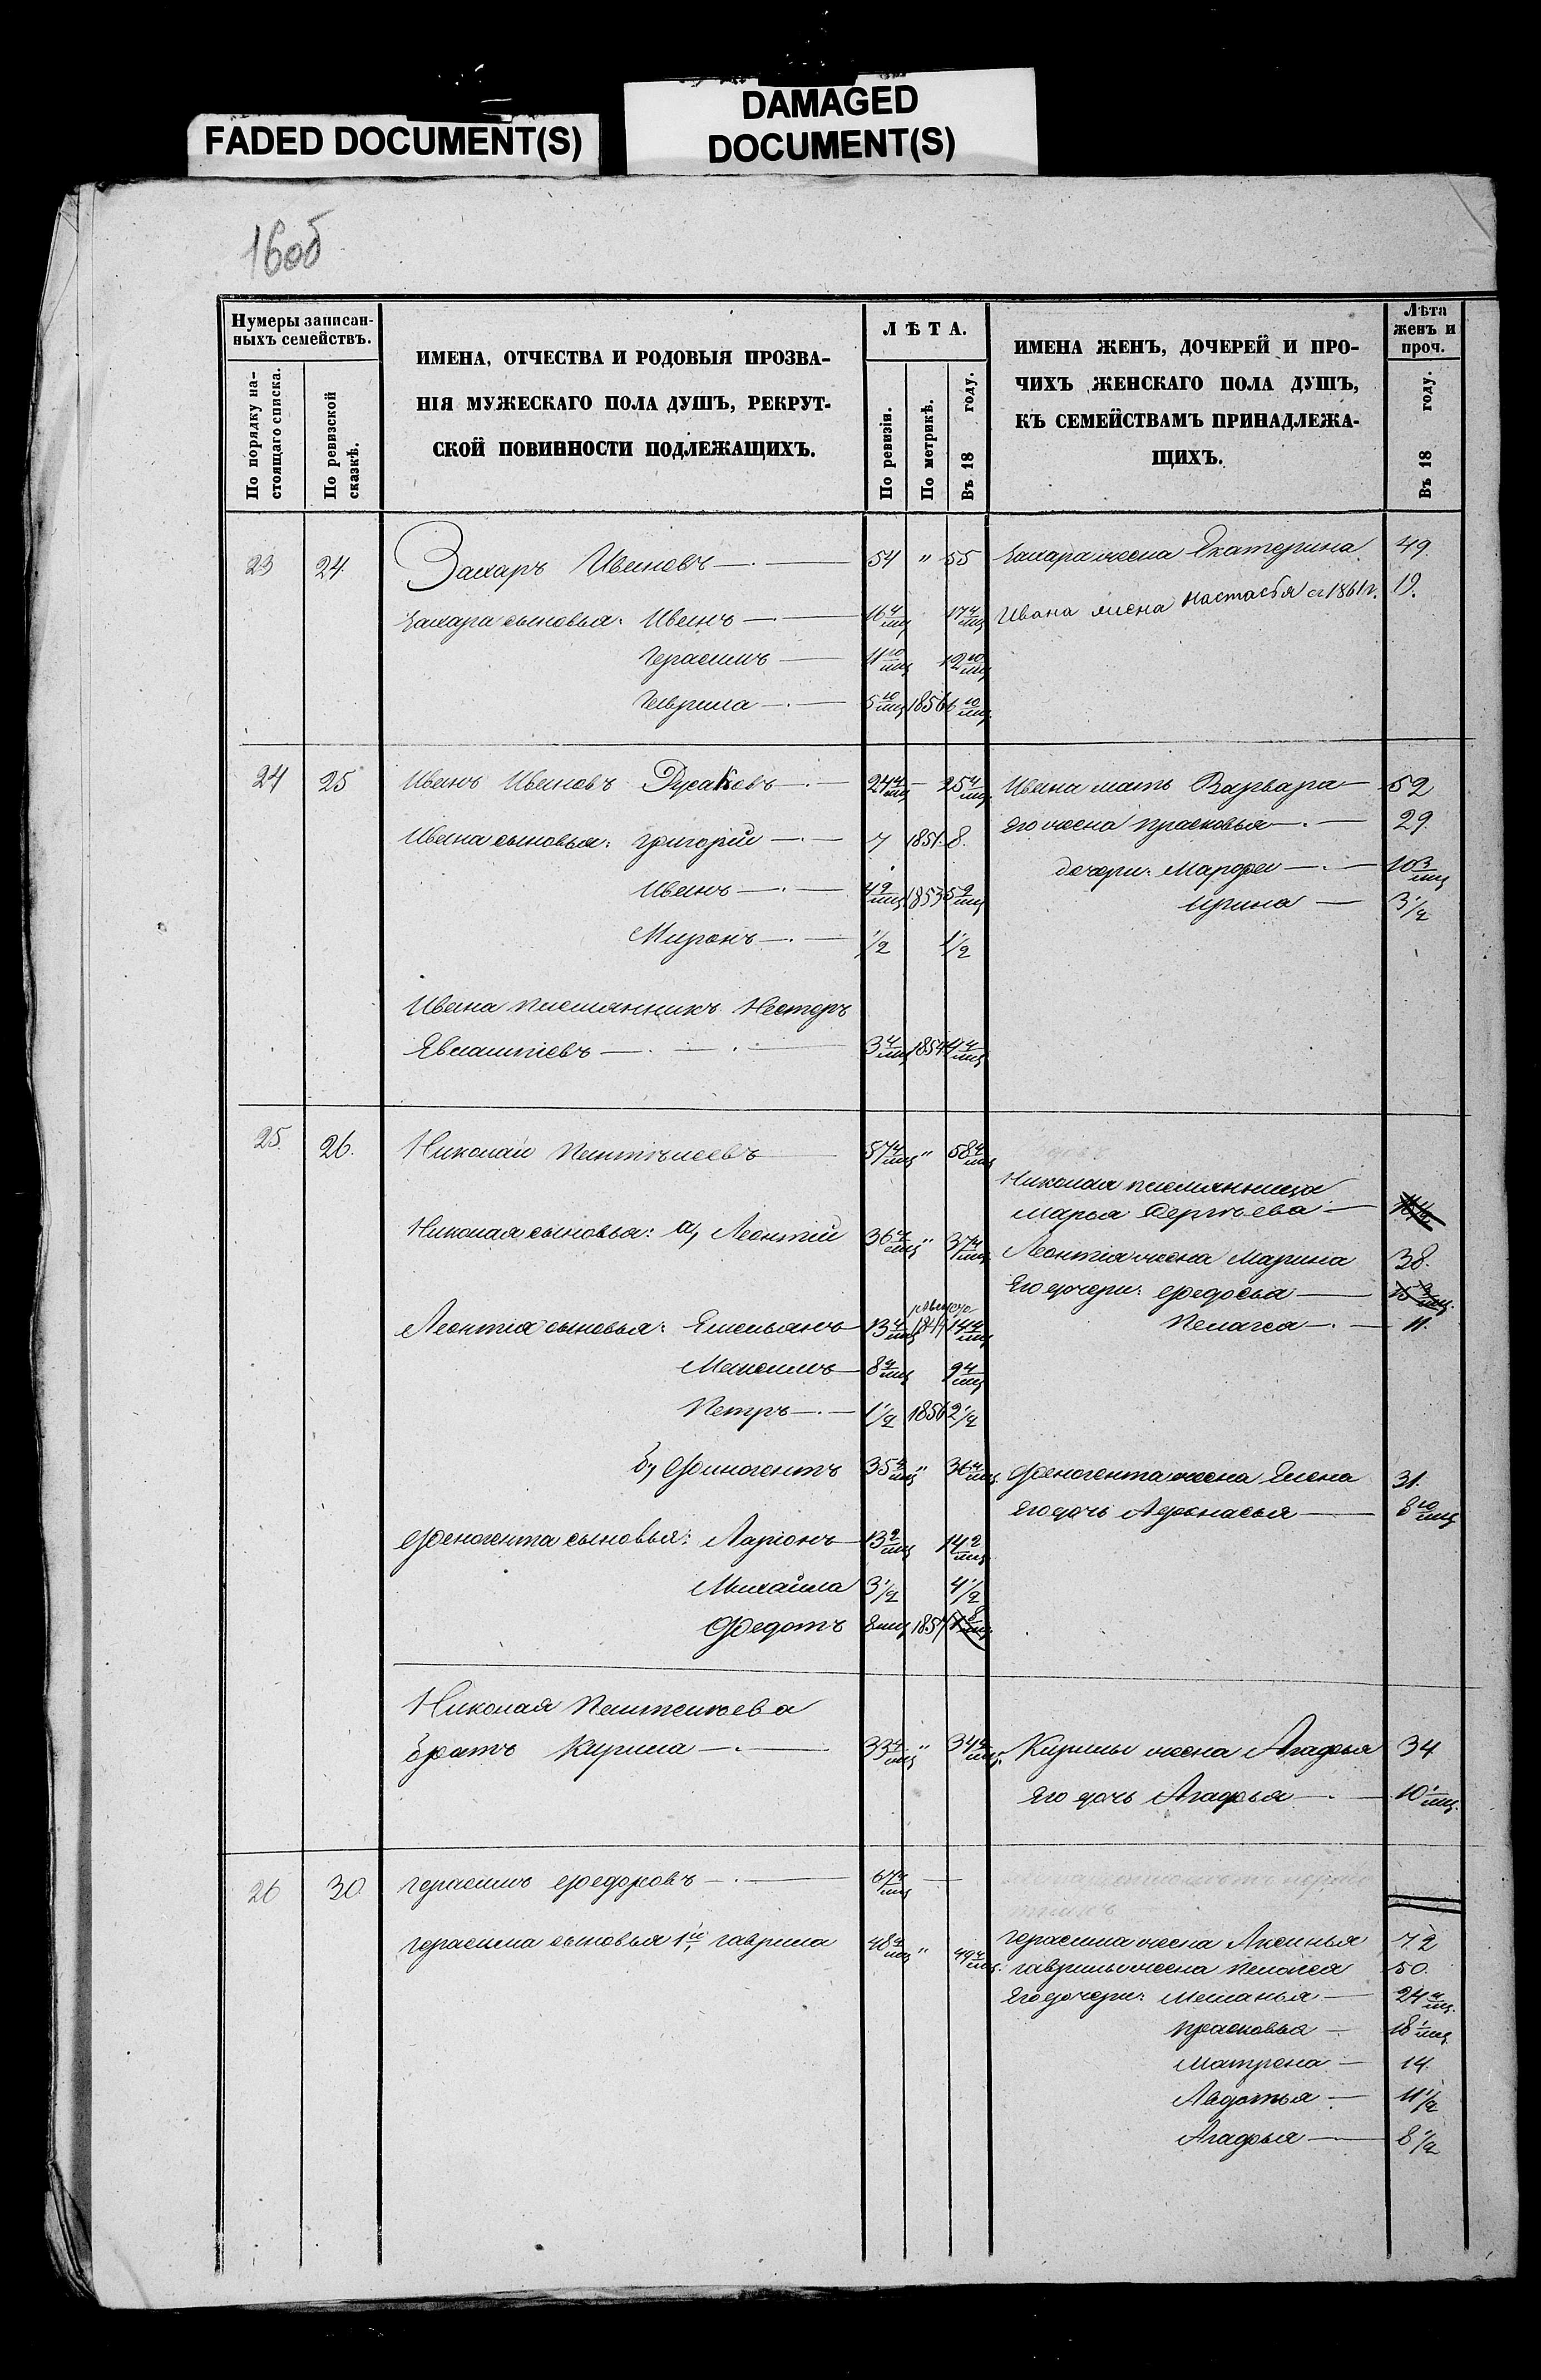 FADED DOCUMENT(S)
DAMAGED
DOCUMENT(S)
16об
Нумеры записан-
ныхъ семействъ.
По порядку на-
стоящаго списка.
По ревизской
сказкѣ.
ИМЕНА, ОТЧЕСТВА И РОДОВЫЯ ПРОЗВА-
НІЯ МУЖЕСКАГО ПОЛА ДУШЪ, РЕКРУТ-
СКОЙ ПОВИННОСТИ ПОДЛЕЖАЩИХЪ.
ЛѢТА.
По ревизіи.
По метрикѣ.
Въ 18 году.
ИМЕНА ЖЕНЪ, ДОЧЕРЕЙ И ПРО-
ЧИХЪ ЖЕНСКАГО ПОЛА ДУШЪ,
КЪ СЕМЕЙСТВАМЪ ПРИНАДЛЕЖА-
ЩИХЪ.
Лѣта
женъ и
проч.
Въ 18 году.
23 24. Захаръ Ивановъ 54 " 55 Захара жена Екатерина 49.
Захара сыновья: Иванъ 16 4/мц 17 4/мц Ивана жена Настасья съ 1861 г. 19.
Герасимъ 11 10/мц 12 10/мц
Гаврила 5 10/мц 1856 6 10/мц
24 25 Иванъ Ивановъ Русаковъ 24 4/мц — 25 4/мц Ивана мать Варвара 52
Ивана сыновья: Григорій 7 1851 8. Его жена Прасковья 29.
дочери: Марфа 10 3/мц
Иванъ 4 9/мц 1853 5 9/мц
Ирина 3 1/2
Миронъ 1/2 1 1/2
Ивана племянникъ Несторъ
Евлампіевъ 3 4/мц 1854 4 4/мц
25 26. Николай Пантелѣевъ 57 4/мц " 58 4/мц
Николая племянница
Марья Сергѣева
Николая сыновья: а, Леонтій 36 4/мц " 37 4/мц Леонтія жена Марина 38.
Его дочери: Федосья
Леонтія сыновья: Емельянъ 13 4/мц 14 4/мц Пелагея 11.
Максимъ 8 4/мц 9 4/мц
Петръ 1 1/2 1856 2 1/2
б, Финогентъ 35 4/мц " 36 4/мц Феногента жена Елена 31.
Его дочь Афонасья 8 10/мц
Феногента сыновья: Ларіонъ 13 2/мц 14 2/мц
Михайла 3 1/2 4 1/2
Федотъ 8 мц 1857 1 8/мц
Николая Пантелѣева
братъ Кирила 33 4/мц " 34 4/мц Кирилы жена Агафья 34
Его дочь Агафья 10 1/мц.
26 30. Герасимъ Федоровъ 67 4/мц —
Герасима сыновья 1й, Гаврила 48 4/мц " 49 4/мц. Герасима жена Аксинья 72
Гаврилы жена Пелагея 50.
Его дочери: Меланья 24 4/мц.
Прасковья 18 1/мц
Матрена 14.
Авдотья 11 1/2
Агафья 8 1/2